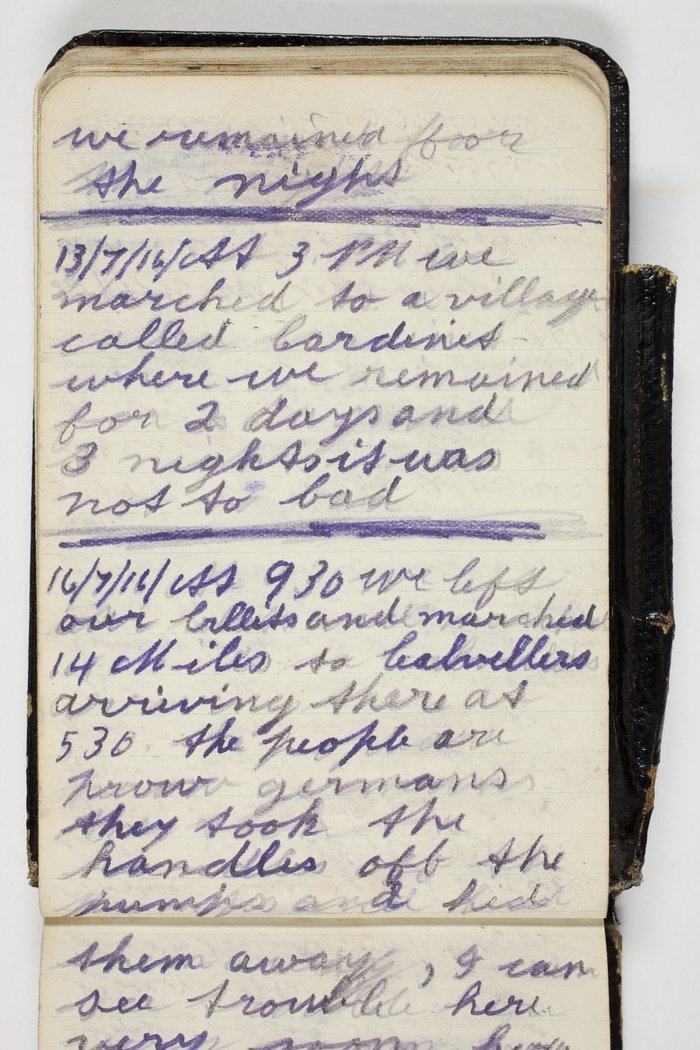 we remained foor
the night
13/7/16/ At 3 PM we
marched to a village
called Cardines
where we remained
for 2 days and
3 nights it was
not to bad
16/7/16/ At 930 we left
our billits and marched
14 Miles to
arriving there at
530 the people are
prowe germans
they took the
handles off the
pumps and hidd
them away, I can
see trouble here
very soon how